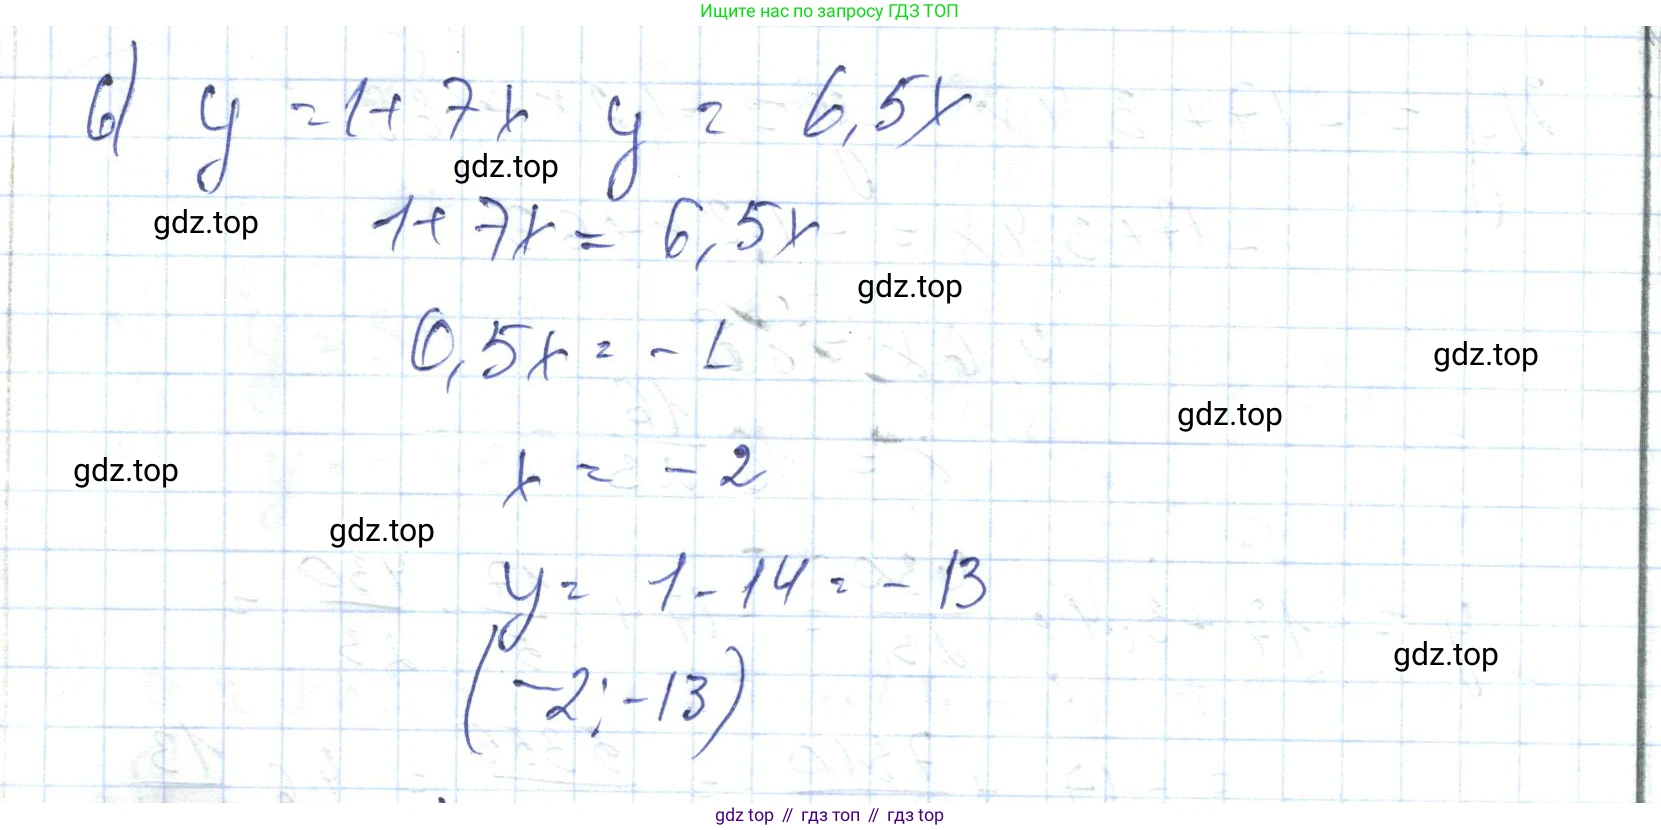 Ищите нас по запросу ГДЗ ТОП
б) y = 1 + 7x y = 6,5x
gdz.top
gdz.top
1 + 7x = 6,5x
gdz.top
0,5x = - 1
gdz.top
gdz.top
x = - 2
gdz.top
gdz.top
y = 1 - 14 = - 13
gdz.top
(-2; -13)
gdz.top // гдз топ // гдз top